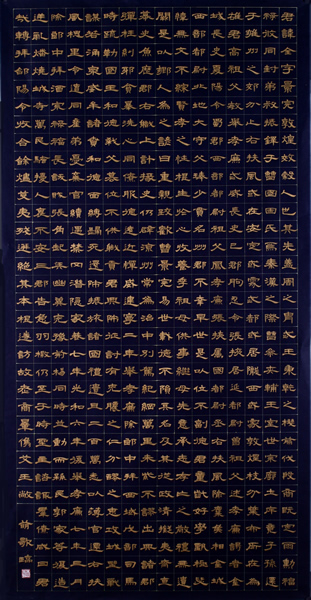 君諱全字景完敦煌效穀人也其先蓋周之冑武王秉乾之機翦伐殷商既定爾勳福
祿攸同封弟叔振鐸于曹國因氏焉秦漢之際曹參夾輔王室世宗廓土斥竟
子孫遷于雍州之郊分止右扶風或在安定或處武都或居隴西或家敦煌枝分葉布所在為
雄君高祖父敏舉孝廉武威長史巴郡朐忍令張掖居延都尉曾祖父述孝廉謁者金
城長史夏陽令蜀郡西部都尉祖父鳳孝廉張掖屬國都尉丞右扶風隃麋侯相金城
西部都尉北地太守父琫少貫名州郡不幸早世是以位不副德君童齔好學甄極毖
緯無文不綜賢孝之性根生於心收養季祖母供事繼母先意承志存亡之敬禮無遺
闕是以鄉人為之諺曰重親致歡曹景完易世載德不隕其名及其從政清擬夷齊直
慕史魚歷郡右職上計掾史仍辟涼州常為治中別駕紀綱萬里朱紫不謬出典諸郡
彈枉糾邪貪暴洗心同僚服德遠近憚威建寧二年舉孝廉除郎中拜西域戊部司馬
時疏勒國王和德弒父篡位不供職貢君興師征討有吮膿之仁分醪之惠攻城野戰
謀若涌泉威牟諸賁和德面縛歸死還師振旅諸國禮遺且二百萬悉以簿官遷右扶
風槐里令遭同產弟憂棄官續遇禁罔潛隱家巷七年光和六年復舉孝廉七年三月
除郎中拜酒泉祿福長訞賊張角起兵幽冀兗豫荊楊同時並動而縣民郭家等復造
逆亂燔燒城寺萬民騷擾人裹不安三郡告急羽檄仍至于時聖主諮諏群僚咸曰君
哉轉拜郃陽令收合餘燼芟夷殘迸絕其本根遂訪故老商量儁艾王敞